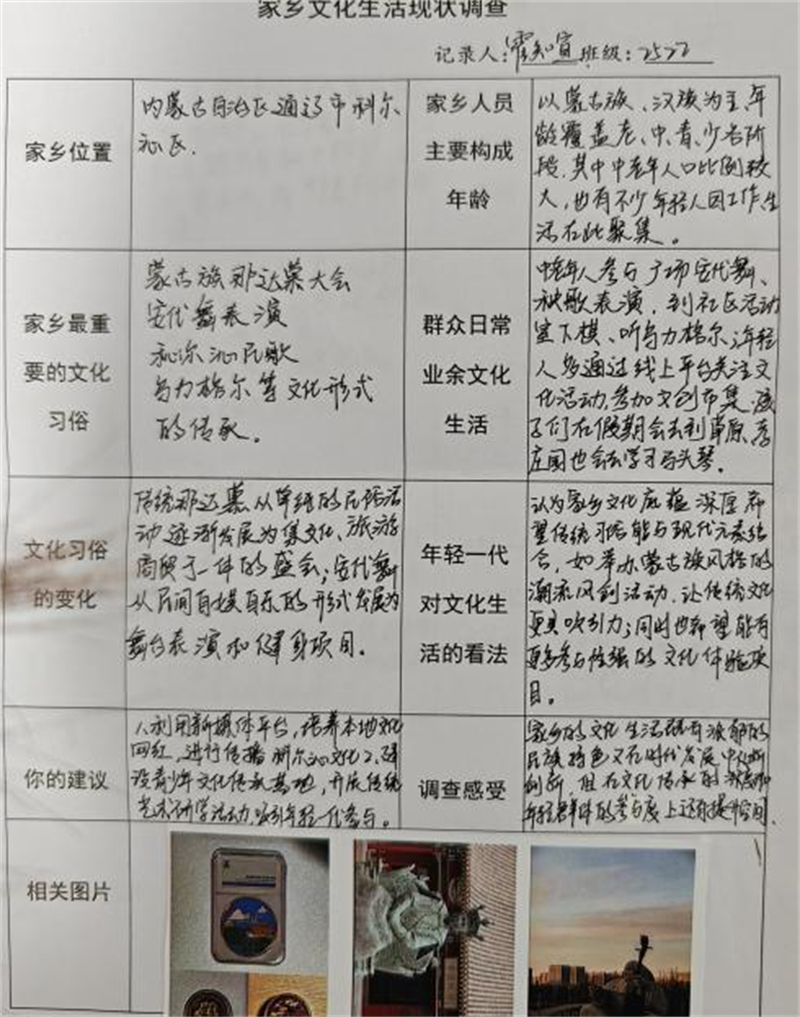 家乡文化生活现状调查
记录人：霍知宣 班级：2522
家乡位置
内蒙古自治区通辽市科尔
沁区.
家乡人员
主要构成
年龄
以蒙古族、汉族为主,年
龄覆盖老、中、青、少各阶
段,其中中老年人口比例较
大,也有不少年轻人因工作、生
活在此聚集。
家乡最重
要的文化
习俗
蒙古族那达慕大会
安代舞表演
科尔沁民歌
乌力格尔等文化形式
的传承。
群众日常
业余文化
生活
中老年人参与广场安代舞、
秧歌表演,到社区活动
室下棋、听乌力格尔;年轻
人多通过线上平台关注文
化活动,参加文创市集;孩
子们在假期会去到草原、
庄园也会去学习马头琴。
文化习俗
的变化
传统那达慕从单纯的民俗活
动逐渐发展为集文化、旅游
商贸于一体的盛会;安代舞
从民间自娱自乐的形式发展为
舞台表演和健身项目。
年轻一代
对文化生
活的看法
认为家乡文化底蕴深厚,希
望传统习俗能与现代元素结
合,如举办蒙古族风格的
潮流风创活动,让传统文化
更具吸引力;同时也希望能有
更多参与性强的文化体验项
目。
你的建议
1,利用新媒体平台,培养本地文化
网红,进行传播科尔沁文化2,建
设青少年文化传承基地,开展传统
艺术研学活动,吸引年轻一代参与。
调查感受
家乡的文化生活既有浓郁的
民族特色又在时代发展中不断
创新,但在文化传承的深度和
年轻群体的参与度上还有提升空间.
相关图片